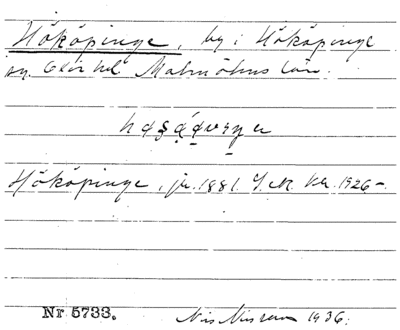 Hököpinge, by i Hököpinge
sn. Oxie hd Malmöhus län.
Hököpinge, jr. 1881. G.s.R. Kr. 1926-.
Nr 5733. Nils Nilsson 1936.